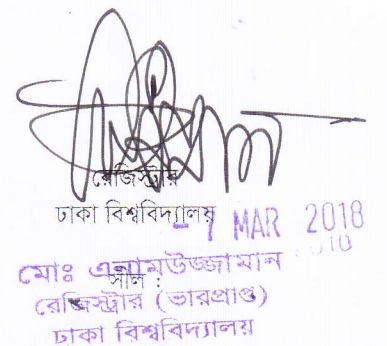 রেজিস্ট্রার
ঢাকা বিশ্ববিদ্যালয়
- 7 MAR 2018
সীল :
মোঃ এনামউজ্জামান
রেজিস্ট্রার (ভারপ্রাপ্ত)
ঢাকা বিশ্ববিদ্যালয়